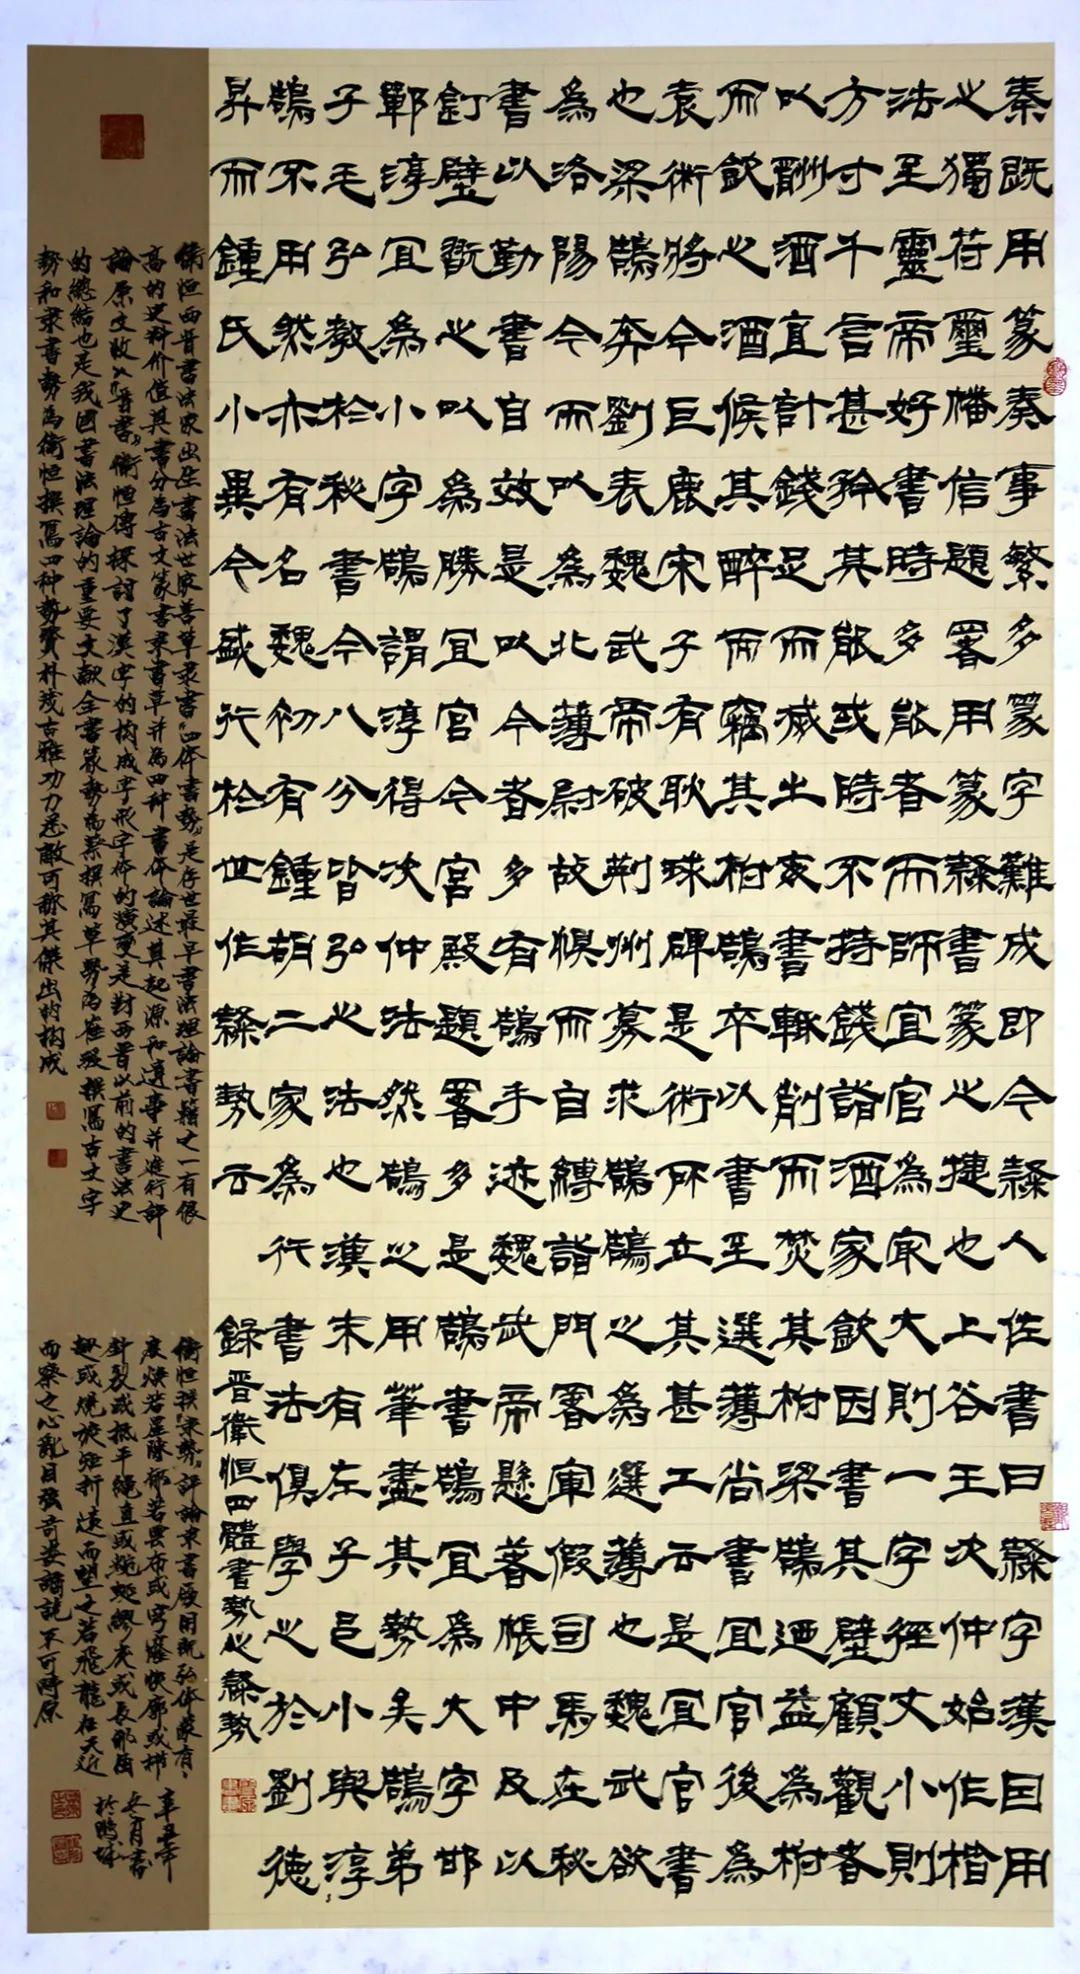 秦既用篆奏事繁多篆字難成即令隸人佐書曰隸字漢因用
之獨符璽幡信題署用篆隸書篆之捷也上谷王次仲始作楷
法至靈帝好書時多能者而師宜官為冣大則一字徑丈小則
方寸千言甚矜其能或時不持錢詣酒家飲因書其壁顧觀者
以酬酒直計錢足而滅之每書輒削而焚其柎梁鵠迺益為柎
而飲之酒候其醉而竊其柎鵠卒以書至選薄尚書宜官後為
袁術將今巨鹿宋子有耿球碑是術所立其甚工云是宜官書
也梁鵠奔劉表魏武帝破荊州募求鵠鵠之為選薄也魏武欲
為洛陽令而以為北薄尉故惧而自縛詣門署軍假司馬在秘
書以勤書自效是以今者多有鵠手迹魏武帝懸著帳中及以
釘壁翫之以為勝宜官今宮殿題署多是鵠書鵠宜為大字邯
鄲淳宜為小字鵠謂淳得次仲法然鵠之用筆盡其勢矣鵠弟
子毛弘教於秘書今八分皆弘之法也漢末有左子邑小與淳
鵠不用然亦有名魏初有鍾胡二家為行書法俱學之於劉德
昇而鍾氏小異今盛行於世作隸勢云
錄晉衛恒四體書勢之隸勢
衛恒西晉書法家出生書法世家善草隶書四体書勢是存世最早書法理論書籍之一有很
高的史料价值其書分為古文篆書隶書草并為四种書体論述其起源和遺事并進行評
論原文收入晋書衛恒傳探討了漢字的构成字形字体的演变是對西晋以前的書法史
的總結也是我國書法理論的重要文献全書篆勢為蔡撰寫草勢為崔瑗撰寫古文字
勢和隶書勢為衛恒撰寫四种勢賛朴茂古雅功力悉敵可称其傑出的构成
衛恒撰隶勢評論隶書应用既弘体象有
度焕若星陳郁若雲布或穹窿恢廓或櫛
針裂或砥平繩直或蜿蜒繆戾或長邪角
趣或规旋矩折遠而望之若飛龍在天近
而察之心亂目弦奇姿譎詭不可勝原
辛丑年
冬月書
於鵬城